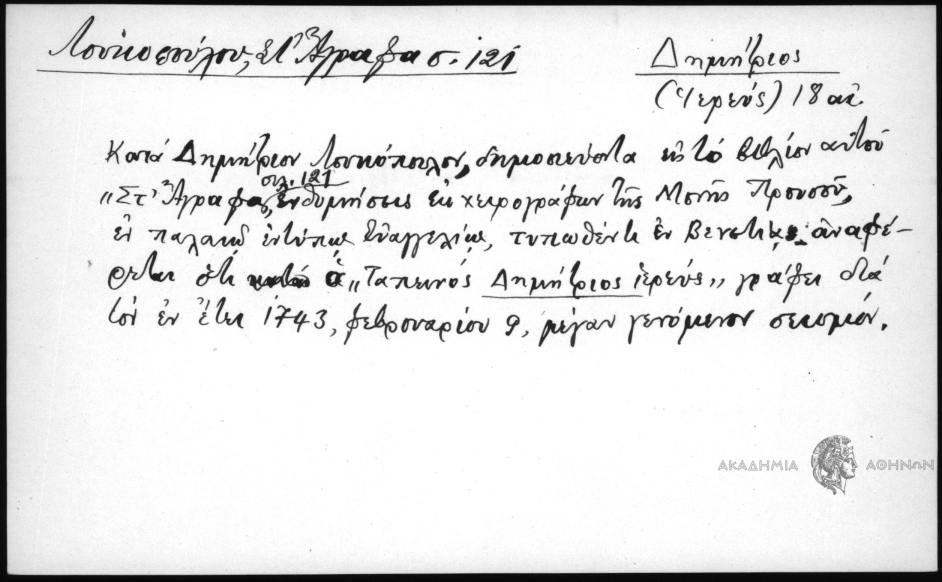 Λουκοπούλου, Στ' Ἄγραφα σ. 121
Δημήτριος
(Ἱερεύς) 18 αἰ.
Κατά Δημήτριον Λουκόπουλον, δημοσιεύοντα εἰς τό βιβλίον αὐτοῦ
σελ. 121
"Στ' Ἄγραφα, ἐνθυμήσεις ἐκ χειρογράφων τῆς Μονῆς Προυσοῦ,
ἐν παλαιῷ ἐντύπῳ Εὐαγγελίῳ, τυπωθέντι ἐν Βενετίᾳ, ἀναφέ-
ρεται ὅτι ὁ "Ταπεινός Δημήτριος ἱερεύς" γράφει διά
τόν ἐν ἔτει 1743, φεβρουαρίου 9, μέγαν γενόμενον σεισμόν.
ΑΚΑΔΗΜΙΑ ΑΘΗΝΩΝ